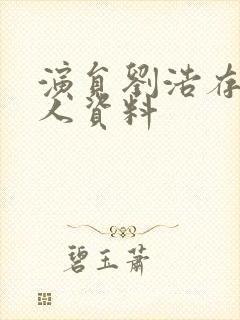 演員劉浩存
人資料
碧玉蕭